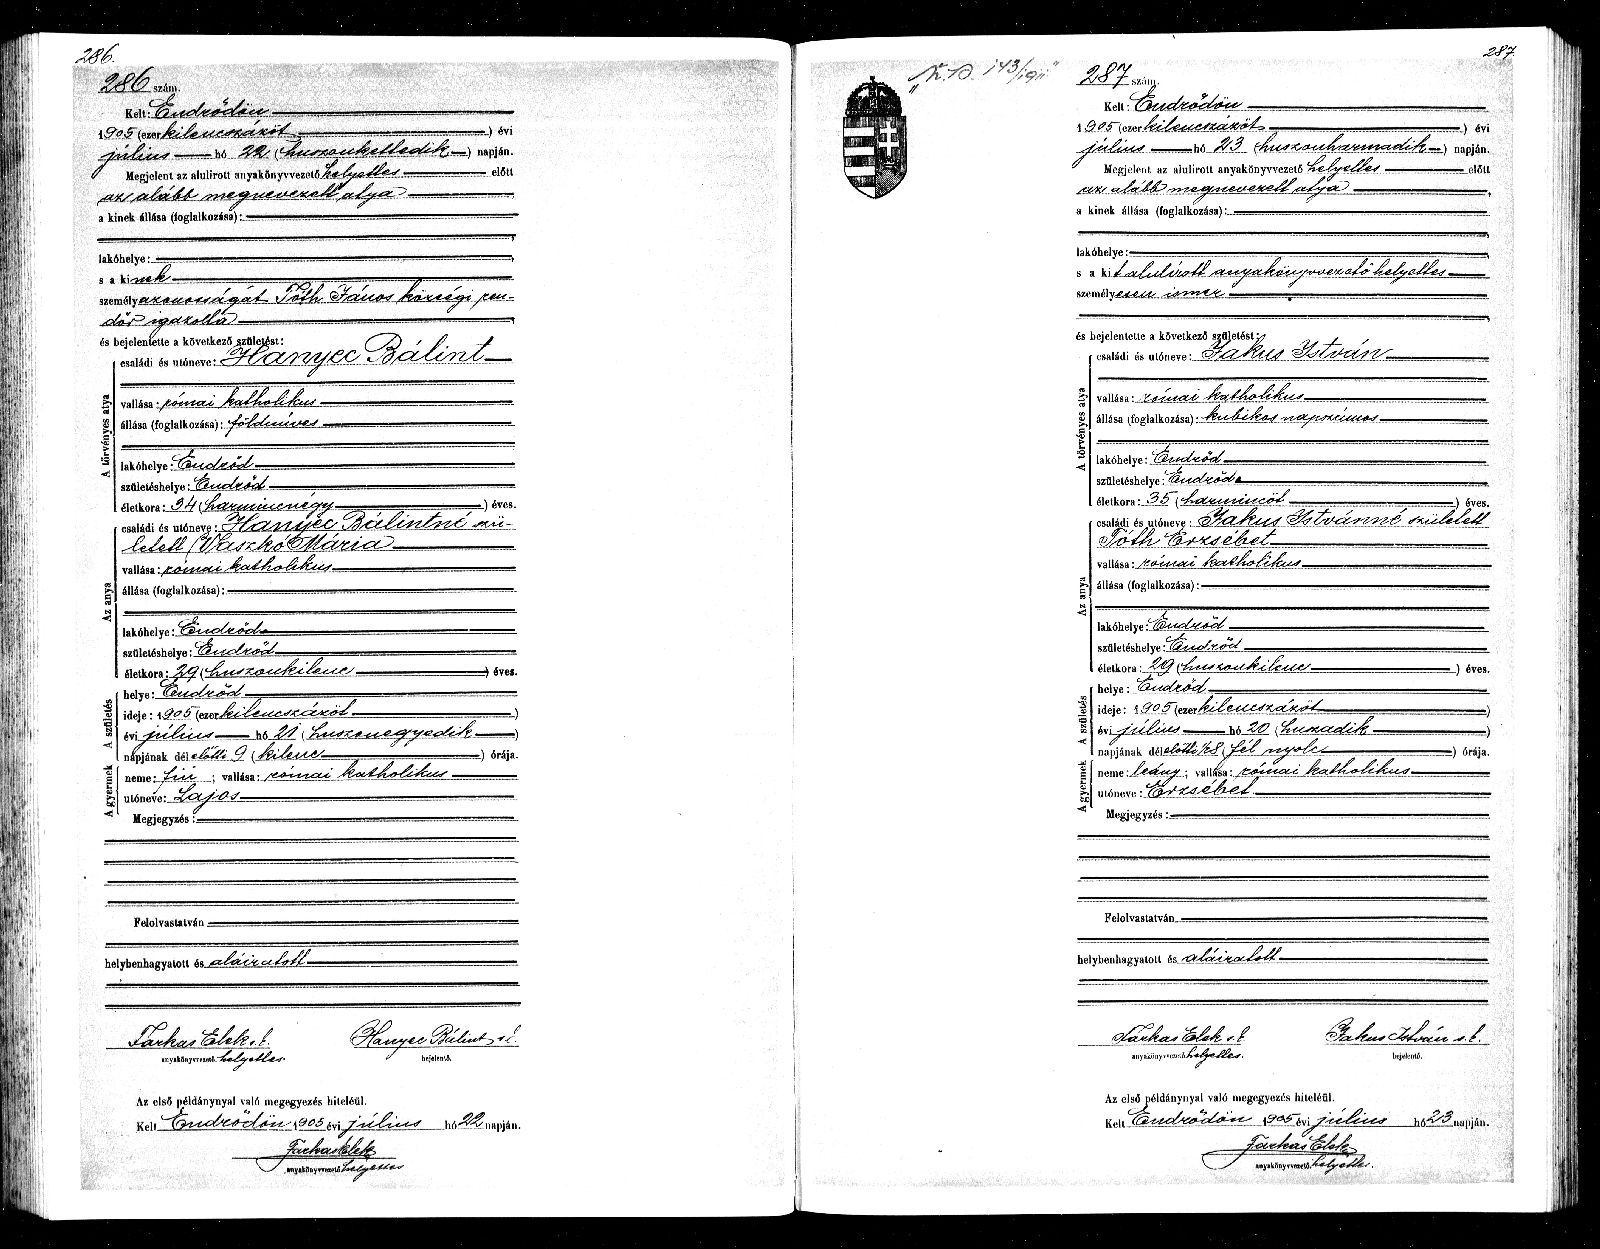 286.
286 szám.
Kelt: Endrődön
1905 (ezerkilenczázöt) évi
július hó 22 (huszonkettedik) napján.
Megjelent az alulirott anyakönyvvezető helyettes előtt
az alább megnevezett atya
a kinek állása (foglalkozása):
lakóhelye:
s a kinek
személyazonosságát Tóth János községi ren-
dőr igazolta
és bejelentette a következő születést:
A törvényes atya
családi és utóneve: Hanyec Bálint
vallása: római katholikus
állása (foglalkozása): földmíves
lakóhelye: Endrőd
születéshelye: Endrőd
életkora: 34 (harmincnégy) éves.
Az anya
családi és utóneve: Hanyec Bálintné szü-
letett Vaszkó Mária
vallása: római katholikus
állása (foglalkozása):
lakóhelye: Endrőd
születéshelye: Endrőd
életkora: 29 (huszonkilenc) éves.
A születés
helye: Endrőd
ideje: 1905 (ezerkilencszázöt)
évi július hó 21 (huszonegyedik)
napjának délelőtti 9 (kilenc) órája.
A gyermek
neme: fiú; vallása: római katholikus
utóneve: Lajos
Megjegyzés:
Felolvastatván
helybenhagyatott és aláiratott
Farkas Elek s. k. Hanyec Bálint s. k.
anyakönyvvezető helyettes. bejelentő.
Az első példánynyal való megegyezés hiteléül.
Kelt Endrődön 1905 évi július hó 22 napján.
Farkas Elek
anyakönyvvezető helyettes
287.
143/1911
287 szám.
Kelt: Endrődön
1905 (ezerkilenczázöt) évi
július hó 23 (huszonharmadik) napján.
Megjelent az alulirott anyakönyvvezető helyettes előtt
az alább megnevezett atya
a kinek állása (foglalkozása):
lakóhelye:
s a kit alulírott anyakönyvvezető helyettes
személyesen ismer
és bejelentette a következő születést:
A törvényes atya
családi és utóneve: Jakus István
vallása: római katholikus
állása (foglalkozása): kubikos napszámos
lakóhelye: Endrőd
születéshelye: Endrőd
életkora: 35 (harmincöt) éves.
Az anya
családi és utóneve: Jakus Istvánné született
Tóth Erzsébet
vallása: római katholikus
állása (foglalkozása):
lakóhelye: Endrőd
születéshelye: Endrőd
életkora: 29 (huszonkilenc) éves.
A születés
helye: Endrőd
ideje: 1905 (ezerkilencszázöt)
évi július hó 20 (huszadik)
napjának délelőtti ½8 (fél nyolc) órája.
A gyermek
neme: leány; vallása: római katholikus
utóneve: Erzsébet
Megjegyzés:
Felolvastatván,
helybenhagyatott és aláiratott
Farkas Elek s. k. Jakus István s. k.
anyakönyvvezető helyettes. bejelentő.
Az első példánynyal való megegyezés hiteléül.
Kelt Endrődön 1905 évi július hó 23 napján.
Farkas Elek
anyakönyvvezető helyettes.